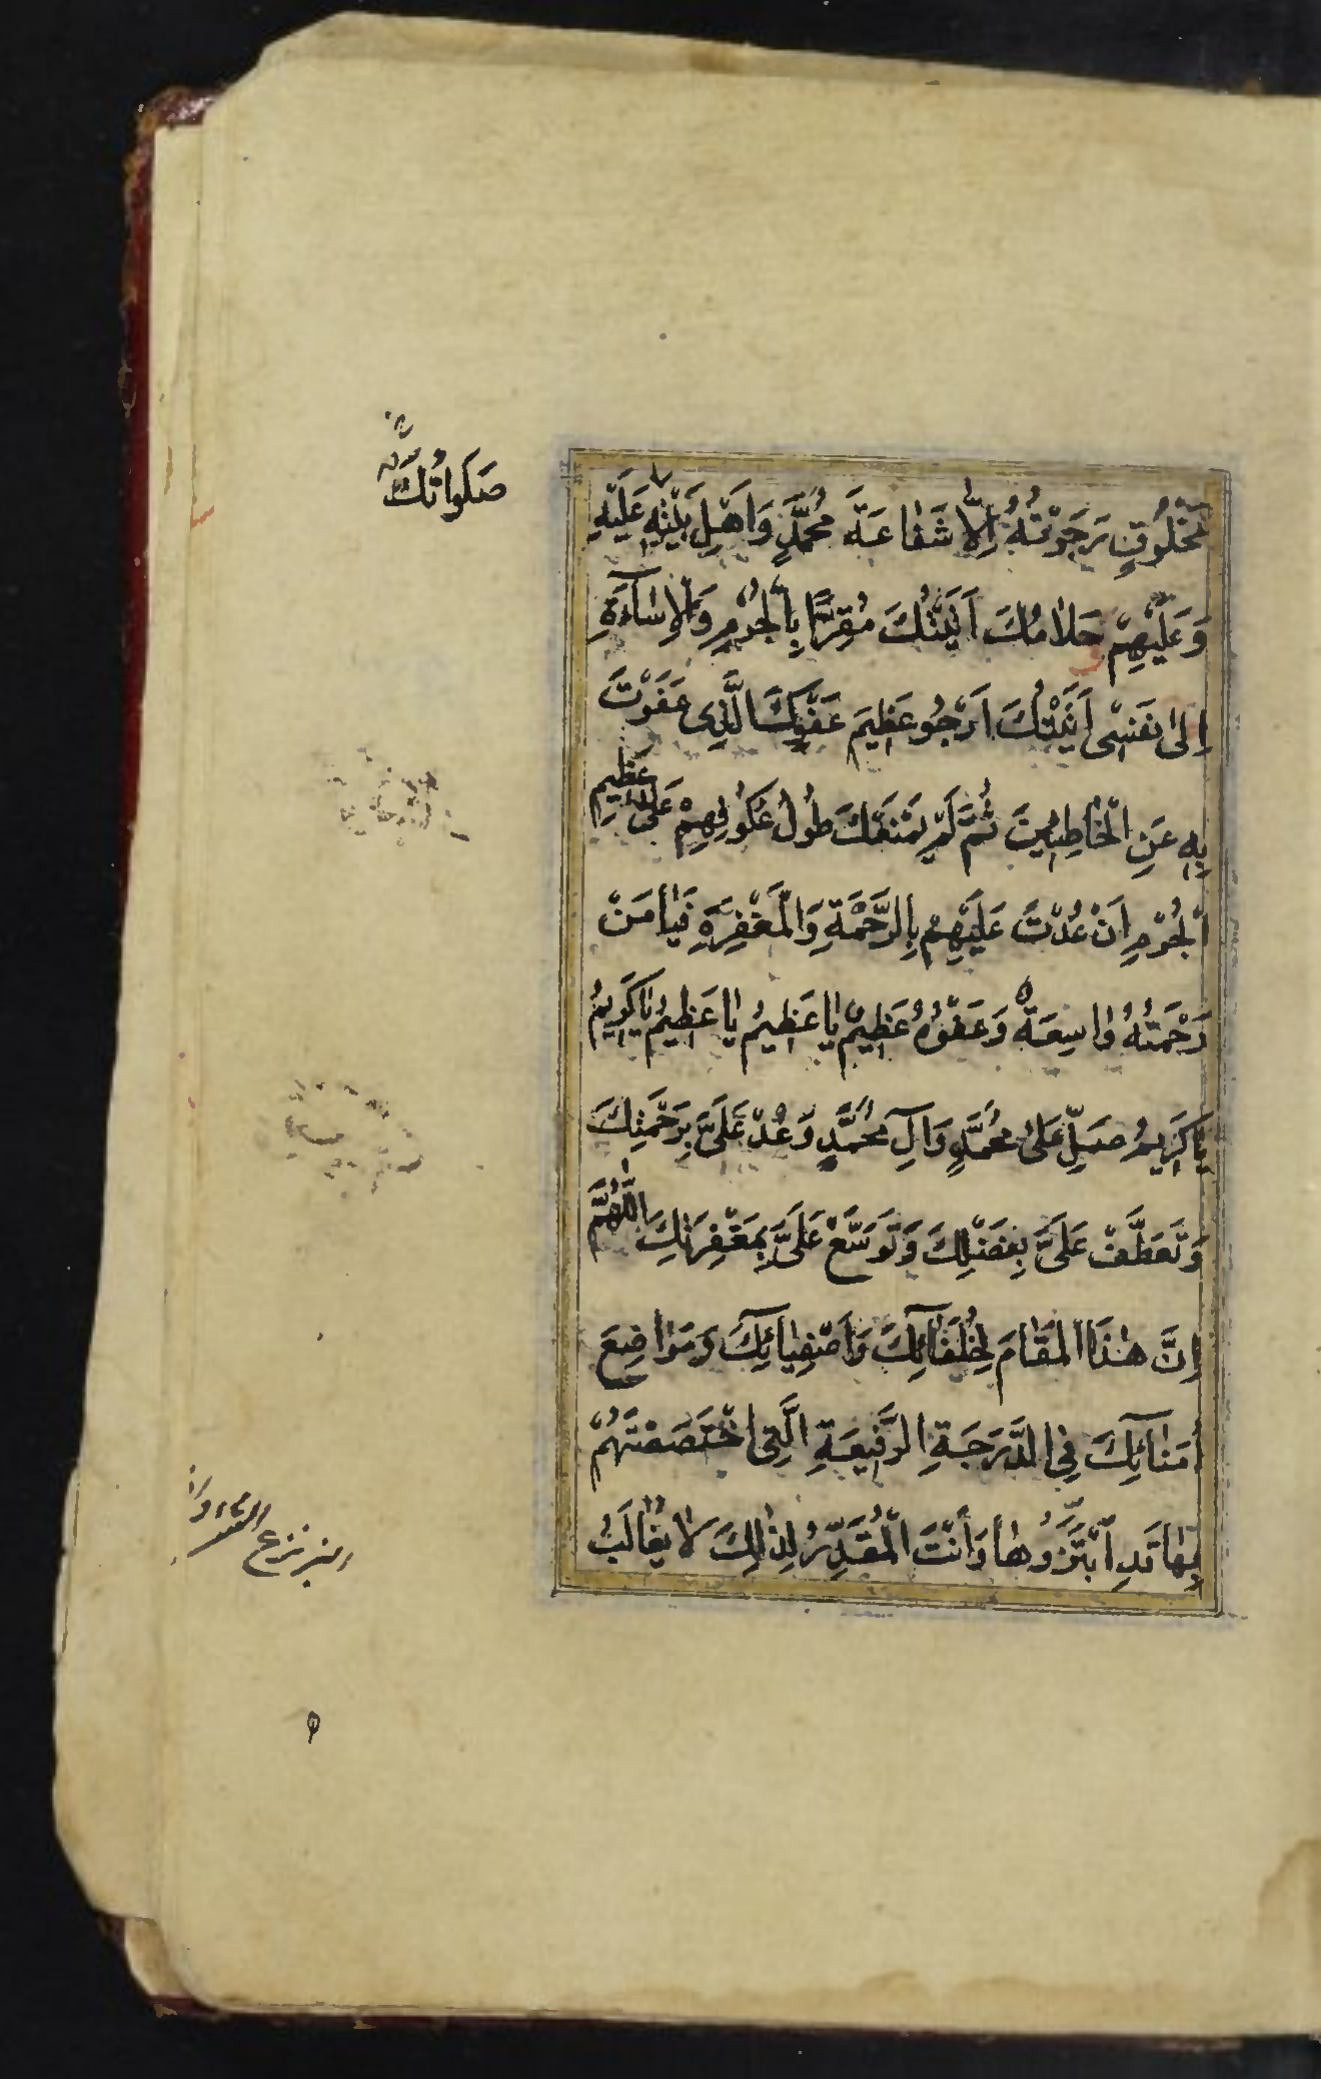 مَخْلُوقٍ رَجَوْتُهُ اِلّا شَفاعَةَ مُحَمَّدٍ وَاَهْلِ بَيْتِهِ عَلَيْهِ
صَلَواتُكَ
وَعَلَيْهِمْ سَلامُكَ اَتَيْتُكَ مُقِرًّا بِالْجُرْمِ وَالْاِسآءَةِ
اِلىٰ نَفْسْى اَتَيْتُكَ اَرْجُو عَظِيمَ عَفْوِكَ الَّذِى عَفَوْتَ
بِهِ عَنِ الْخاطِئِينَ ثُمَّ لَمْ يَمْنَعْكَ طُولُ عُكُوفِهِمْ عَلىٰ عَظِيمِ
الْجُرْمِ اَنْ عُدْتَ عَلَيْهِمْ بِالرَّحْمَةِ وَالْمَغْفِرَةِ فَيا مَنْ
رَحْمَتُهُ واسِعَةٌ وَعَفْوُهُ عَظِيمٌ يا عَظِيمُ يا عَظِيمُ يا كَرِيمُ
يا كَرِيمُ صَلِّ عَلىٰ مُحَمَّدٍ وَآلِ مُحَمَّدٍ وَعُدْ عَلَىَّ بِرَحْمَتِكَ
وَتَعَطَّفْ عَلَىَّ بِفَضْلِكَ وَتَوَسَّعْ عَلَىَّ بِمَغْفِرَتِكَ اللّٰهُمَّ
اِنَّ هٰذَا الْمَقامَ لِخُلَفآئِكَ وَاَصْفِيآئِكَ وَمَواضِعَ
اُمَنآئِكَ فِى الدَّرَجَةِ الرَّفِيعَةِ الَّتِى اخْتَصَصْتَهُمْ
بِها قَدِ ابْتَزُّوها وَاَنْتَ الْمُقَدِّرُ لِذٰلِكَ لا يُغالَبُ